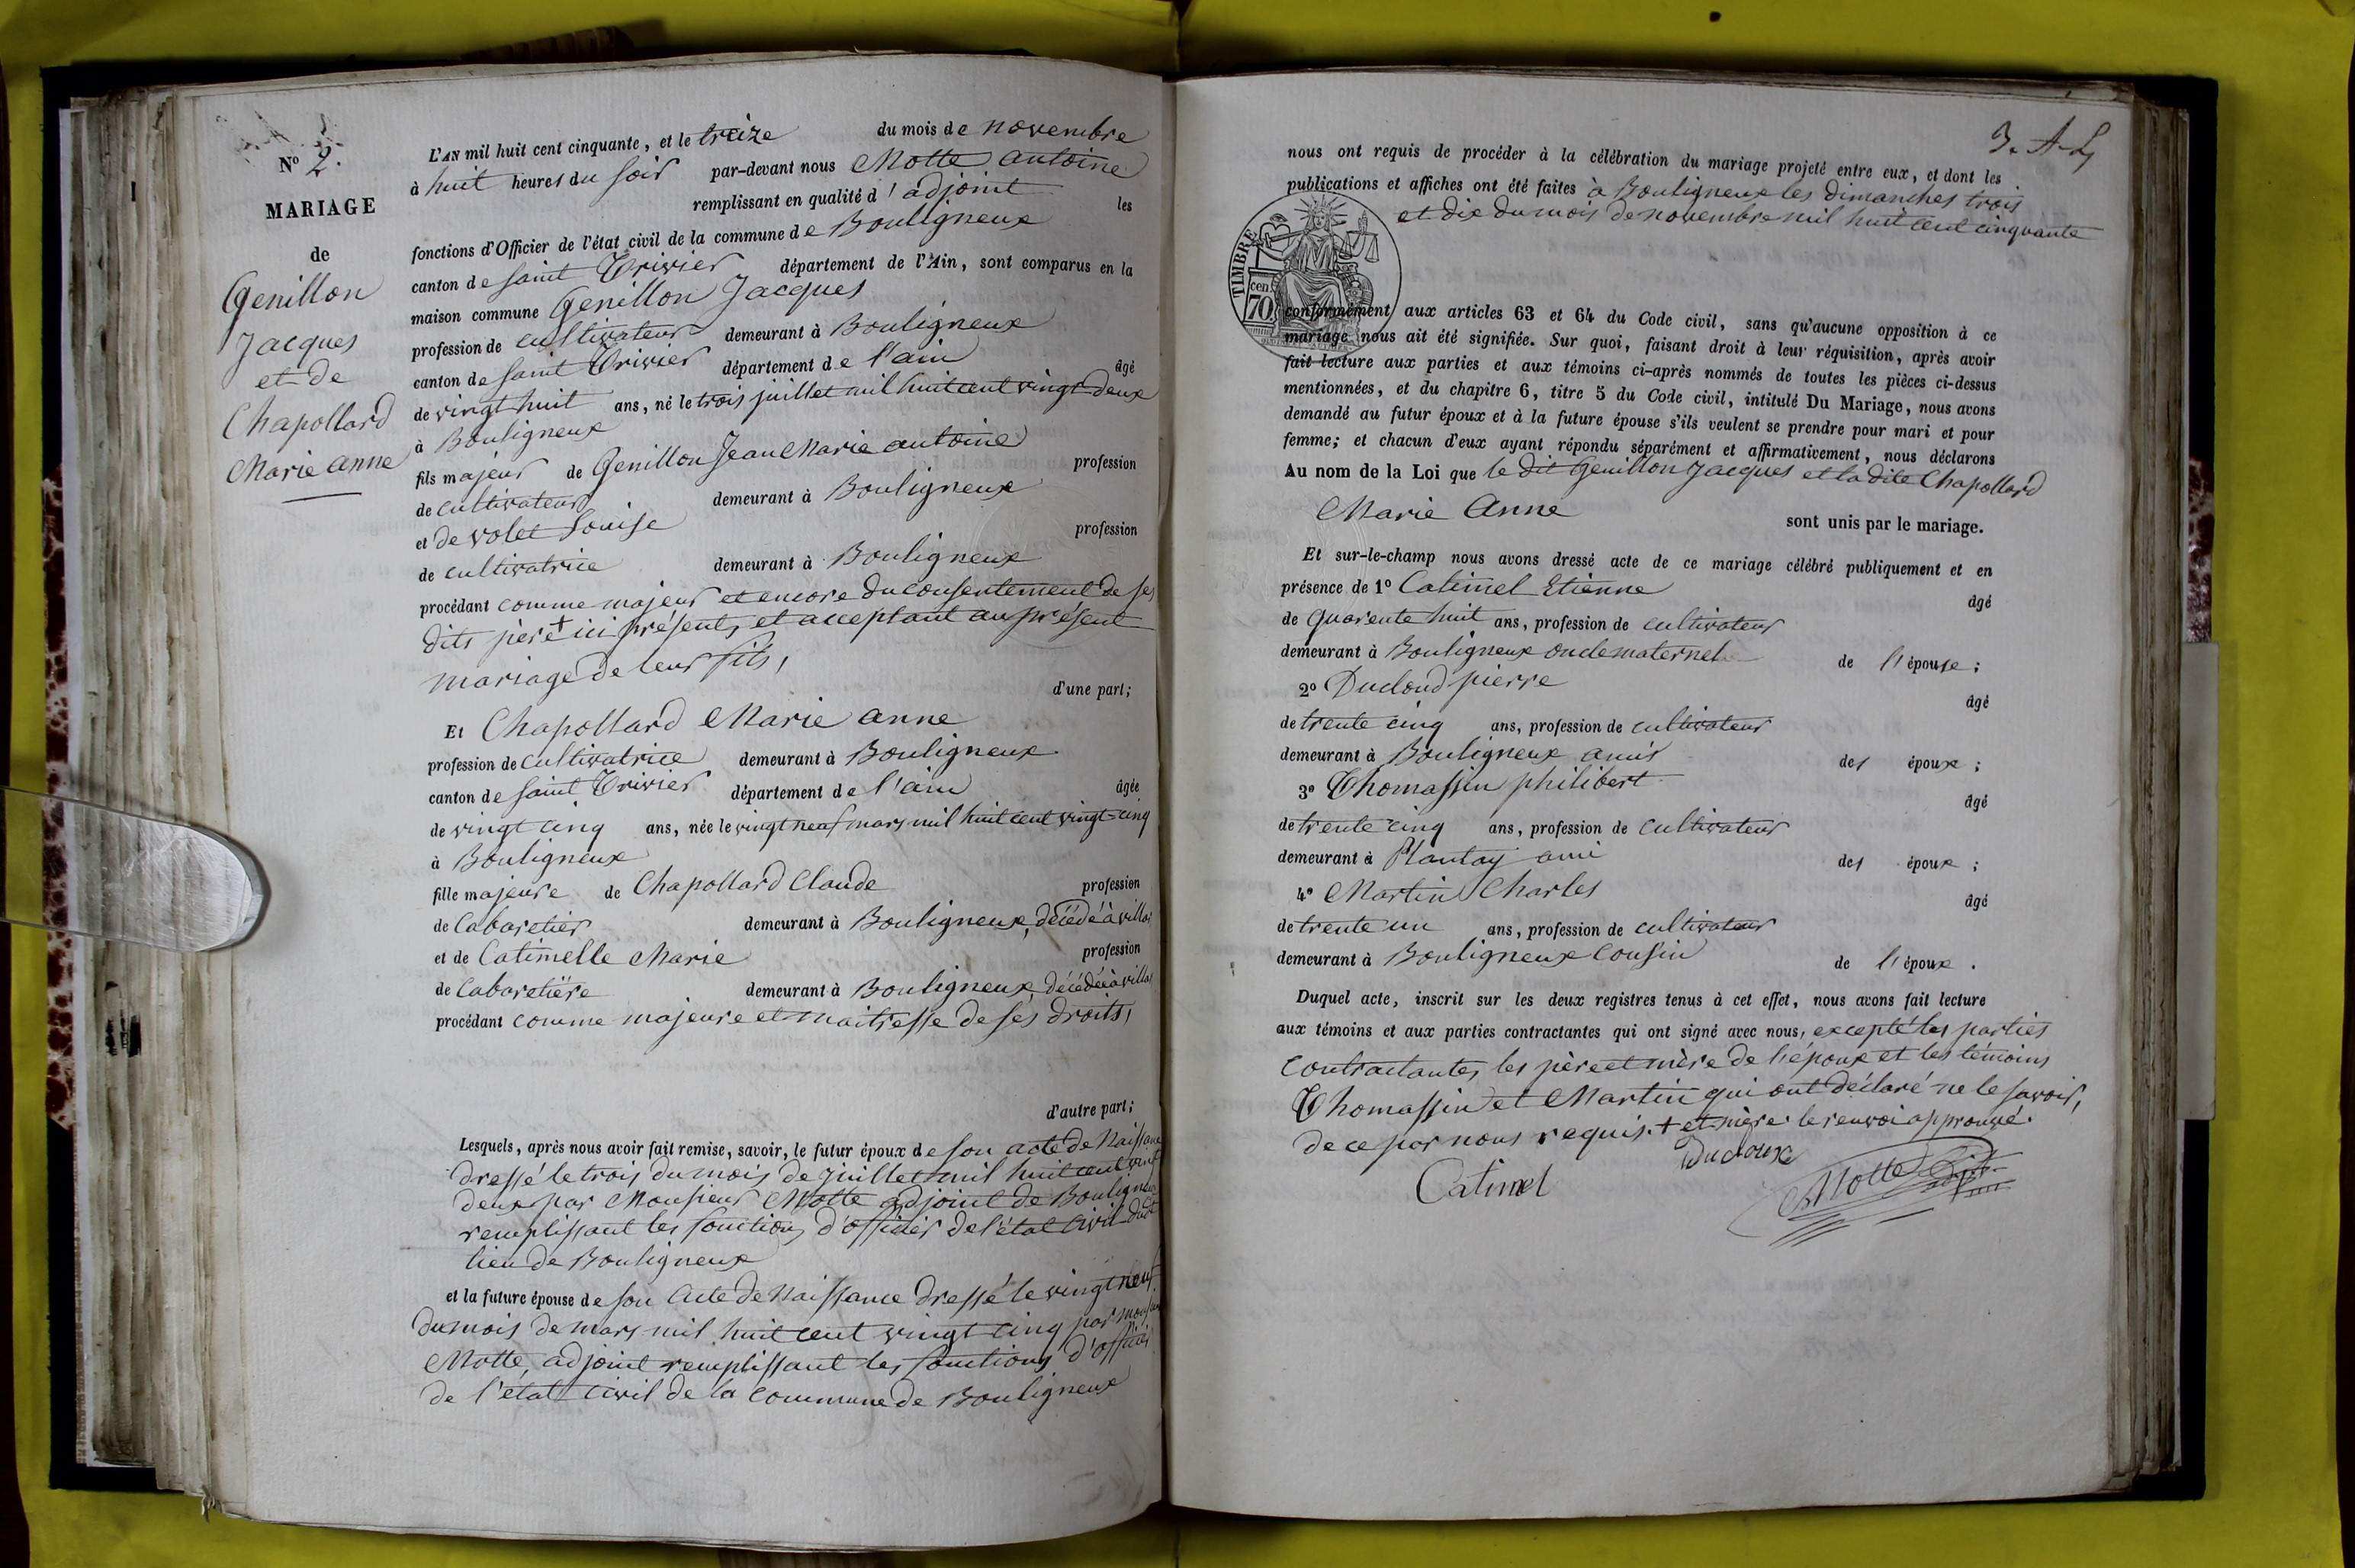 N° 2.
MARIAGE
de
Genillon
Jacques
et de
Chapollard
Marie Anne
L'AN mil huit cent cinquante, et le treize du mois de novembre
à huit heures du soir par-devant nous Motte antoine
remplissant en qualité d'adjoint les
fonctions d'Officier de l'état civil de la commune de Bouligneux
canton de saint Trivier département de l'Ain, sont comparus en la
maison commune Genillon Jacques
profession de cultivateur demeurant à Bouligneux
canton de saint Trivier département de l'ain âgé
de vingt huit ans, né le trois juillet mil huit cent vingt deux
à Bouligneux
fils majeur de Genillon Jean Marie antoine profession
de cultivateur demeurant à Bouligneux
et de volet Louise profession
de cultivatrice demeurant à Bouligneux
procédant comme majeur et encore du consentement de ses
dits père + ici présents, et acceptant au présent
mariage de leur fils,
d'une part;
Et Chapollard Marie anne
profession de cultivatrice demeurant à Bouligneux
canton de saint Trivier département de l'ain âgée
de vingt cinq ans, née le vingt neuf mars mil huit cent vingt-cinq
à Bouligneux
fille majeure de Chapollard Claude profession
de Cabaretier demeurant à Bouligneux, décédé à villars
et de Catimelle Marie profession
de Cabaretière demeurant à Bouligneux, décédée à villars
procédant comme majeure et maitresse de ses droits,
d'autre part;
Lesquels, après nous avoir fait remise, savoir, le futur époux de son acte de Naissance
dressé le trois du mois de juillet mil huit cent vingt
deux par Monsieur Motte adjoint de Bouligneux
remplissant les fonctions d'officier de l'état civil dudt
lieu de Bouligneux
et la future épouse de son Acte de Naissance dressé le vingt neuf
du mois de mars mil huit cent vingt cinq par monsieur
Motte, adjoint remplissant les fonctions d'officier
de l'état civil de la commune de Bouligneux
3. A-L
nous ont requis de procéder à la célébration du mariage projeté entre eux, et dont les
publications et affiches ont été faites à Bouligneux les dimanches trois
et dix du mois de novembre mil huit cent cinquante
TIMBRE
70 cen.
conformément aux articles 63 et 64 du Code civil, sans qu'aucune opposition à ce
mariage nous ait été signifiée. Sur quoi, faisant droit à leur réquisition, après avoir
fait lecture aux parties et aux témoins ci-après nommés de toutes les pièces ci-dessus
mentionnées, et du chapitre 6, titre 5 du Code civil, intitulé Du Mariage, nous avons
demandé au futur époux et à la future épouse s'ils veulent se prendre pour mari et pour
femme; et chacun d'eux ayant répondu séparément et affirmativement, nous déclarons
Au nom de la Loi que le dit Genillon Jacques et la dite Chapollard
Marie Anne sont unis par le mariage.
Et sur-le-champ nous avons dressé acte de ce mariage célébré publiquement et en
présence de 1° Catimel Etienne âgé
de quarente huit ans, profession de cultivateur
demeurant à Bouligneux oncle maternel de l'épouse;
2° Ducloud pierre âgé
de trente cinq ans, profession de cultivateur
demeurant à Bouligneux amis des époux;
3° Thomassin philibert âgé
de trente cinq ans, profession de cultivateur
demeurant à Plantay ami des époux;
4° Martin Charles âgé
de trente un ans, profession de cultivateur
demeurant à Bouligneux Cousin de l'époux.
Duquel acte, inscrit sur les deux registres tenus à cet effet, nous avons fait lecture
aux témoins et aux parties contractantes qui ont signé avec nous, excepté les parties
contractantes, les père et mère de l'époux et les témoins
Thomassin et Martin qui ont déclaré ne le savoir,
de ce par nous requis. + et mère le renvoi approuvé.
Ducloux
Catimel
Motte adjt